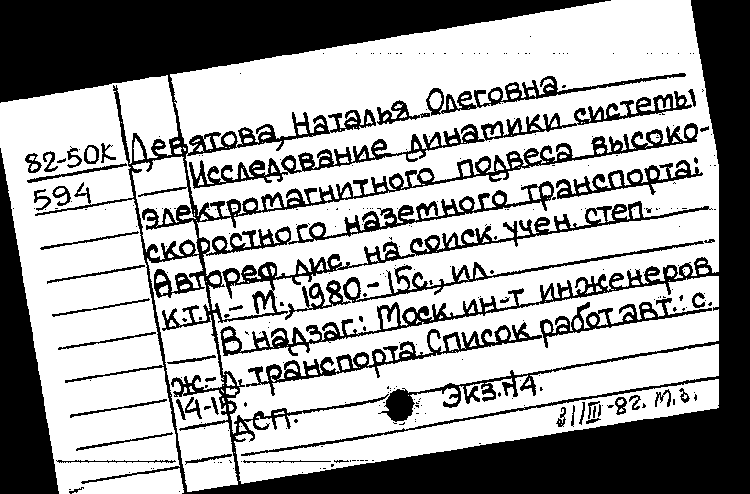 82-50К Девятова, Наталья Олеговна.
594 Исследование динамики системы
электромагнитного подвеса высоко-
скоростного наземного транспорта:
Автореф. дис. на соиск. учен. степ.
к.т.н. - М., 1980. - 15с., ил.
В надзаг.: Моск. ин-т инженеров
ж.-д. транспорта. Список работ авт.: с.
14-15.
ДСП. Экз.№4.
31/III-82. М.З.